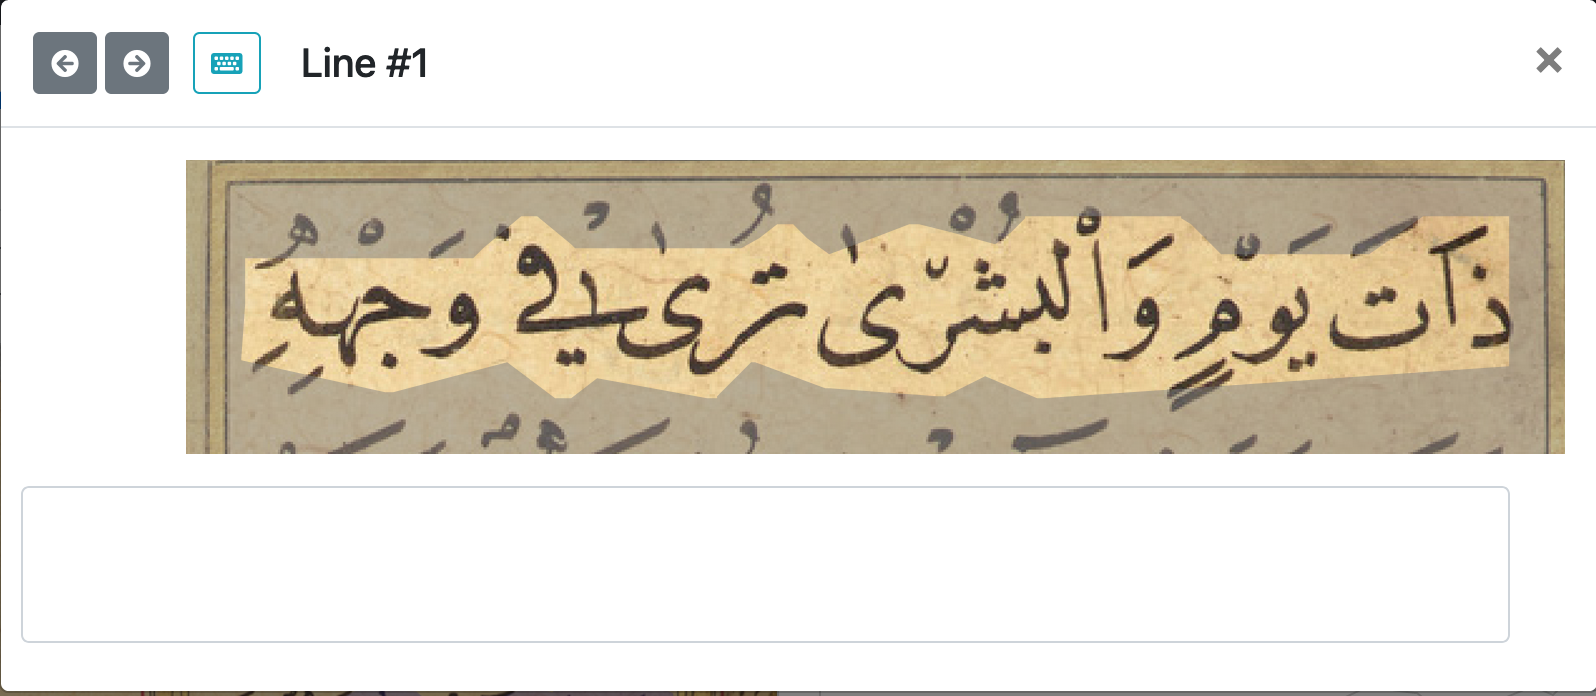 Line #1
ذَاتَ يَوْمٍ وَالْبُشْرٰى تُرٰى فِيْ وَجْهِهٖ